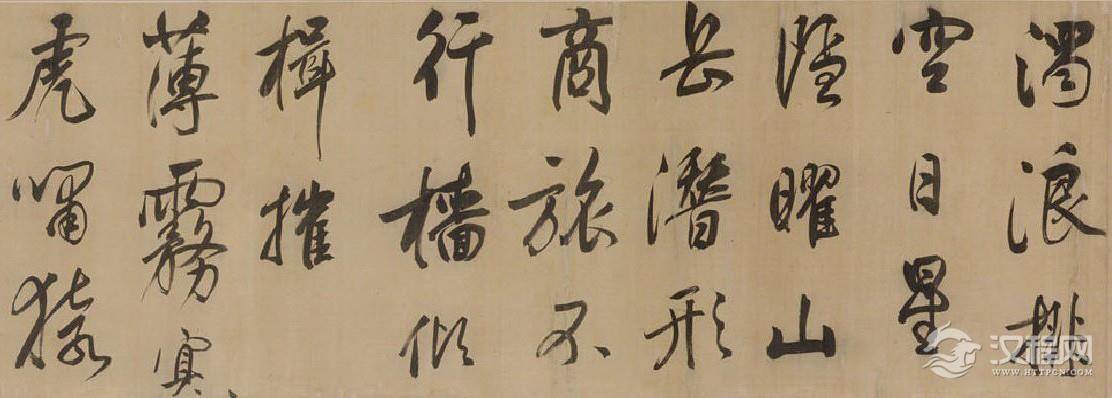 濁浪排
空日星
隱曜山
岳潛形
商旅不
行檣傾
楫摧
薄霧冥々
虎嘯猿
汉程网
WWW.HTTPCN.COM